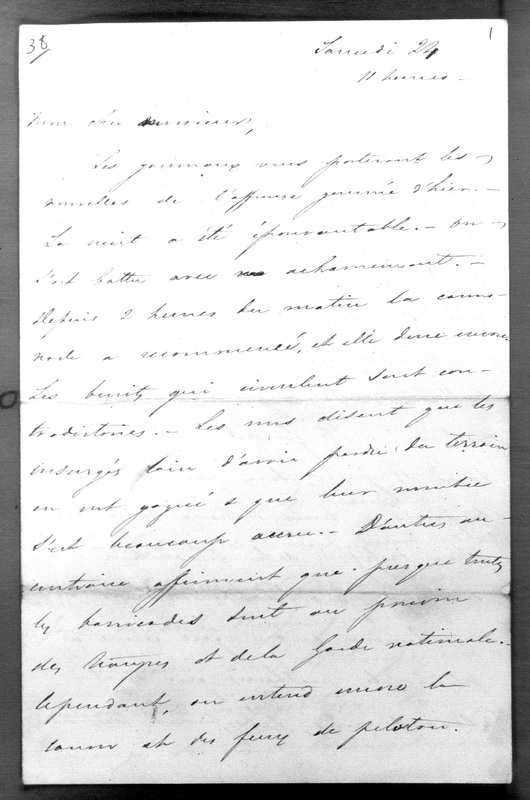 38
1
Samedi 24
11 heures -
Mon cher monsieur,
Les journaux vous porteront les
nouvelles de l'affreuse journée d'hier. -
La nuit a été épouvantable. - On
s'est battu avec acharnement. -
Depuis 2 heures du matin la canon-
nade a recommencé, et elle dure encore.
Les bruits qui circulent sont con-
tradictoires. - Les uns disent que les
insurgés loin d'avoir perdu du terrain
en ont gagné & que leur nombre
s'est beaucoup accru. - D'autres au
contraire affirment que presque toutes
les barricades sont au pouvoir
des troupes et de la Garde nationale. -
Cependant, on entend encore le
canon et des feux de peloton.